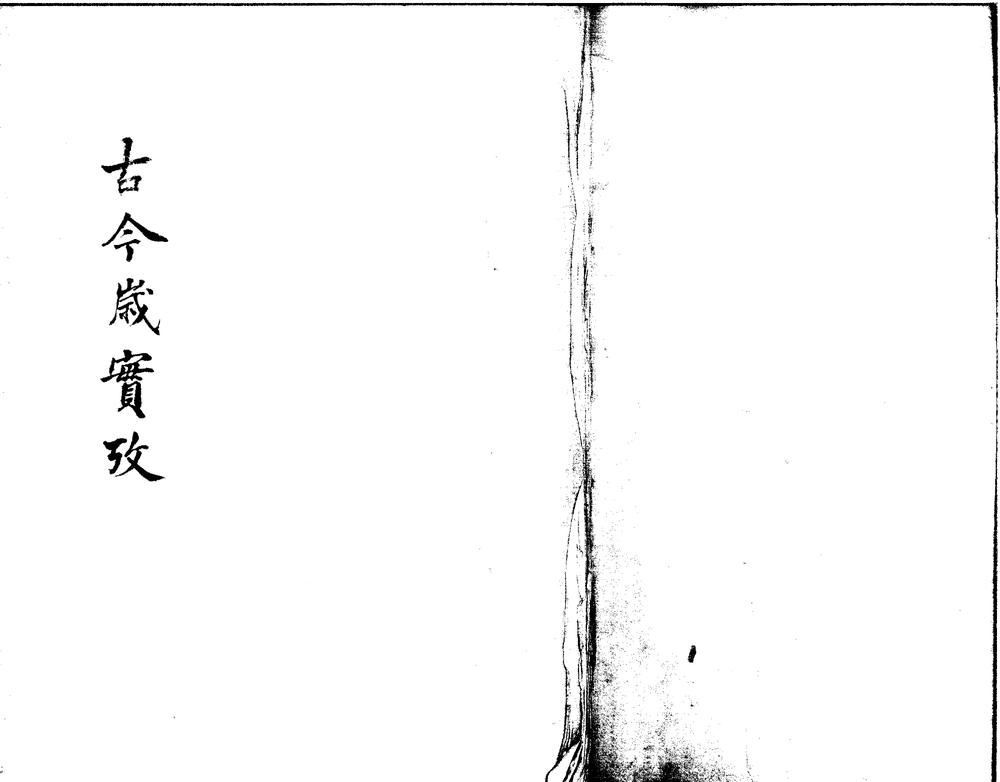 古今歳實攷